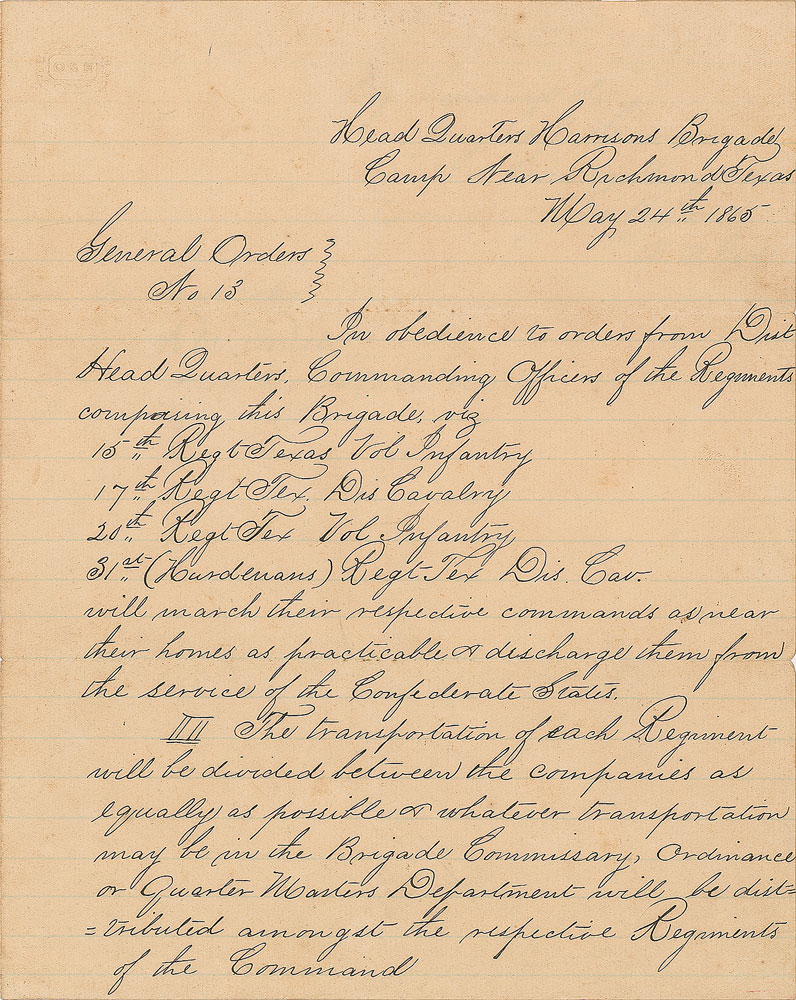 Head Quarters Harrisons Brigade
Camp Near Richmond Texas
May 24th 1865
General Orders
No 13
In obedience to orders from Dist
Head Quarters, Commanding Officers of the Regiments
composing this Brigade, viz
15th Regt Texas Vol Infantry
17th Regt Tex. Dis Cavalry
20th Regt Tex Vol Infantry
31st (Hardemans) Regt Tex Dis. Cav.
will march their respective commands as near
their homes as practicable & discharge them from
the service of the Confederate States.
III The transportation of each Regiment
will be divided between the companies as
equally as possible & whatever transportation
may be in the Brigade Commissary, Ordinance
or Quarter Masters Department will be dist=
=tributed amongst the respective Regiments
of the Command